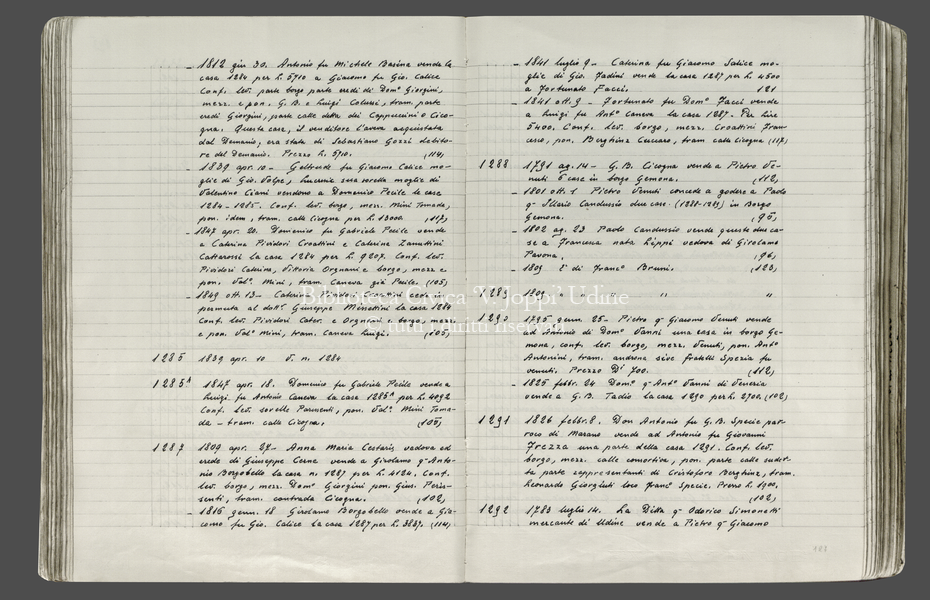 - 1812 giu 30. Antonio fu Michele Basina vende la
casa 1284 per L. 5710 a Giacomo fu Gio. Calice
Conf. lev. parte borgo parte eredi di Domº Giorgini,
mezz. e pon. G. B. e Luigi Colussi, tram. parte
eredi Giorgini, parte calle detta dei Cappuccini o Cico-
gna. Questa casa, il venditore l'aveva acquistata
dal Demanio, era stata di Sebastiano Gozzi debito-
re del Demanio. Prezzo L. 5710. (114)
- 1839 apr. 10 - Geltrude fu Giacomo Calice mo-
glie di Gio. Volpe, Lucrezia sua sorella moglie di
Valentino Ciani vendono a Domenico Pecile la casa
1284-1285. Conf. lev. borgo, mezz. Mini Tomada,
pon. idem, tram. calle Cicogna per L. 13000. (117)
- 1847 apr. 20. Domenico fu Gabriele Pecile vende
a Caterina Pividori Croattini e Caterina Zanuttini
Cattarossi la casa 1284 per L. 9207. Conf. lev.
Pividori Caterina, Vittoria Orgnani e borgo, mezz e
pon. Valº Mini, tram. Caneva già Pecile. (105)
- 1849 ott. 13 - Caterina
permuta al dottº Giuseppe Missettini la casa 1284
Conf. lev. Pividori Cater. e Orgnani e borgo, mezz
e pon. Valº Mini, tram. Caneva Luigi. (105)
1285 1839 apr. 10 V. n. 1284
1285ᴬ 1847 apr. 18. Domenico fu Gabriele Pecile vende a
Luigi fu Antonio Caneva la casa 1285ᴬ per L. 4092
Conf. lev. sorelle Parussuti, pon. Valº Mini Toma-
da - tram. calle Cicogna. (105)
1287 1809 apr. 27 - Anna Maria Cestaris vedova ed
erede di Giuseppe Cerne vende a Girolamo qm Anto-
nio Borgobello la casa n. 1287 per L. 4124. Conf.
lev. borgo, mezz. Domº Giorgini pon. Gius. Peris-
senti, tram. contrada Cicogna. (102)
- 1816 genn. 18 Girolamo Borgobello vende a Gia-
como fu Gio. Calice la casa 1287 per L. 3837. (114)
- 1841 luglio 9 - Caterina fu Giacomo Salice mo-
glie di Gio. Fadini vende la casa 1287 per L. 4500
a Fortunato Facci. 121
- 1841 ott. 9 - Fortunato fu Domº Facci vende
a Luigi fu Antº Caneva la casa 1287. Per Lire
5400. Conf. lev. borgo, mezz. Croattini Fran-
cesco, pon. Berghinz Cuccaro, tram calle Cicogna (117)
1288 1791 ag. 14 - G. B. Cicogna vende a Pietro Ve-
nuti 6 case in borgo Gemona. (112)
- 1801 ott. 1 Pietro Venuti concede a godere a Paolo
qm Ilario Candussio due case (1288-1289) in Borgo
Gemona. (95)
- 1802 ag. 23 Paolo Candussio vende queste due ca-
se a Francesca nata Lippi vedova di Girolamo
Pavona. (96)
- 1809 È di Francº Bruni. (123)
1289 1809 " " "
1290 1795 genn. 25 - Pietro qm Giacomo Venuti vende
ad Antonio di Domº Vanni una casa in borgo Ge-
mona, conf. lev. borgo, mezz. Venuti, pon. Antº
Antonini, tram. androna sive fratelli Spezia fu
venuti. Prezzo Dⁱ 700. (112)
- 1825 febbr. 24 Domº qm Antº Vanni di Venezia
vende a G. B. Tadio la casa 1290 per L. 2700. (102)
1291 1826 febbr. 8. Don Antonio fu G. B. Specie par-
roco di Marano vende ad Antonio fu Giovanni
Frezza una parte della casa 1291. Conf. lev.
borgo, mezz. calle consortiva, pon. parte calle sudet-
ta parte rappresentanti di Cristoforo Berghinz, tram.
Leonardo Giorgiuti loco Francº Specie. Prezzo L. 1900.
(102)
1292 1783 luglio 14. La Ditta qm Odorico Simonetti
mercante di Udine vende a Pietro qm Giacomo
Biblioteca Civica 'V. Joppi' Udine
© tutti i diritti riservati